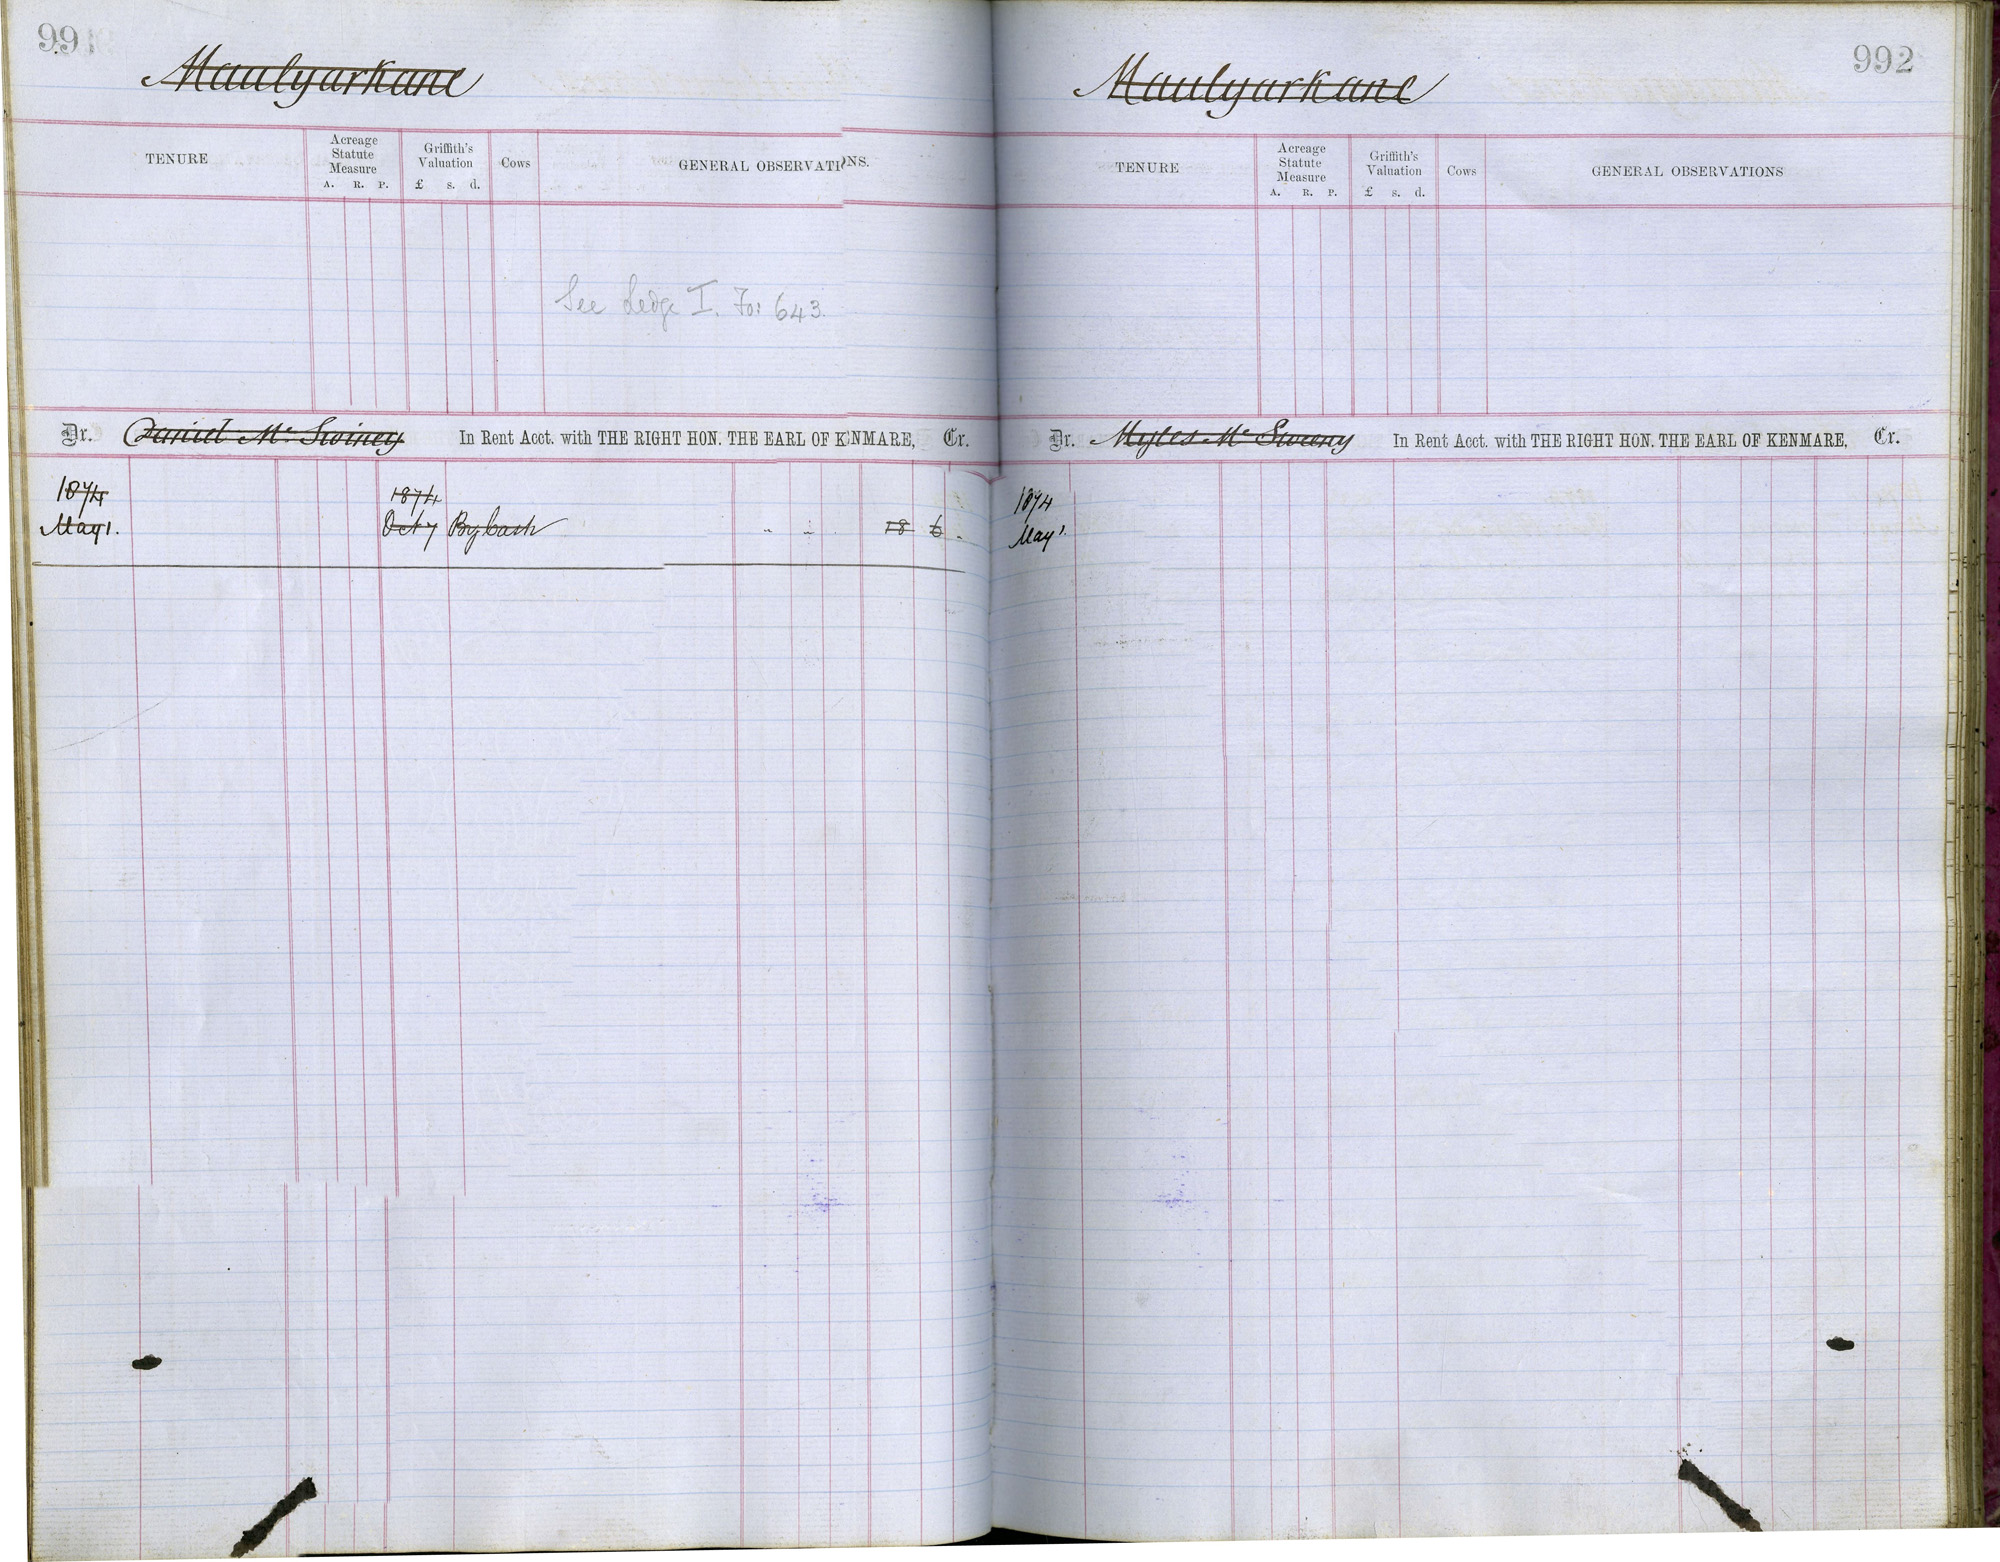 991
Maulyarkane
TENURE
Acreage Statute Measure
A. R. P.
Griffith's Valuation
£ s. d.
Cows
GENERAL OBSERVATIONS.
See Ledge I. Fo: 643.
Dr. Daniel Mc Swiney In Rent Acct. with THE RIGHT HON. THE EARL OF KENMARE, Cr.
1874 1874
May 1. Oct 7 By Cash " " 18 6 .
992
Maulyarkane
TENURE
Acreage Statute Measure
A. R. P.
Griffith's Valuation
£ s. d.
Cows
GENERAL OBSERVATIONS
Dr. Myles Mc Sweeny In Rent Acct. with THE RIGHT HON. THE EARL OF KENMARE, Cr.
1874
May 1.